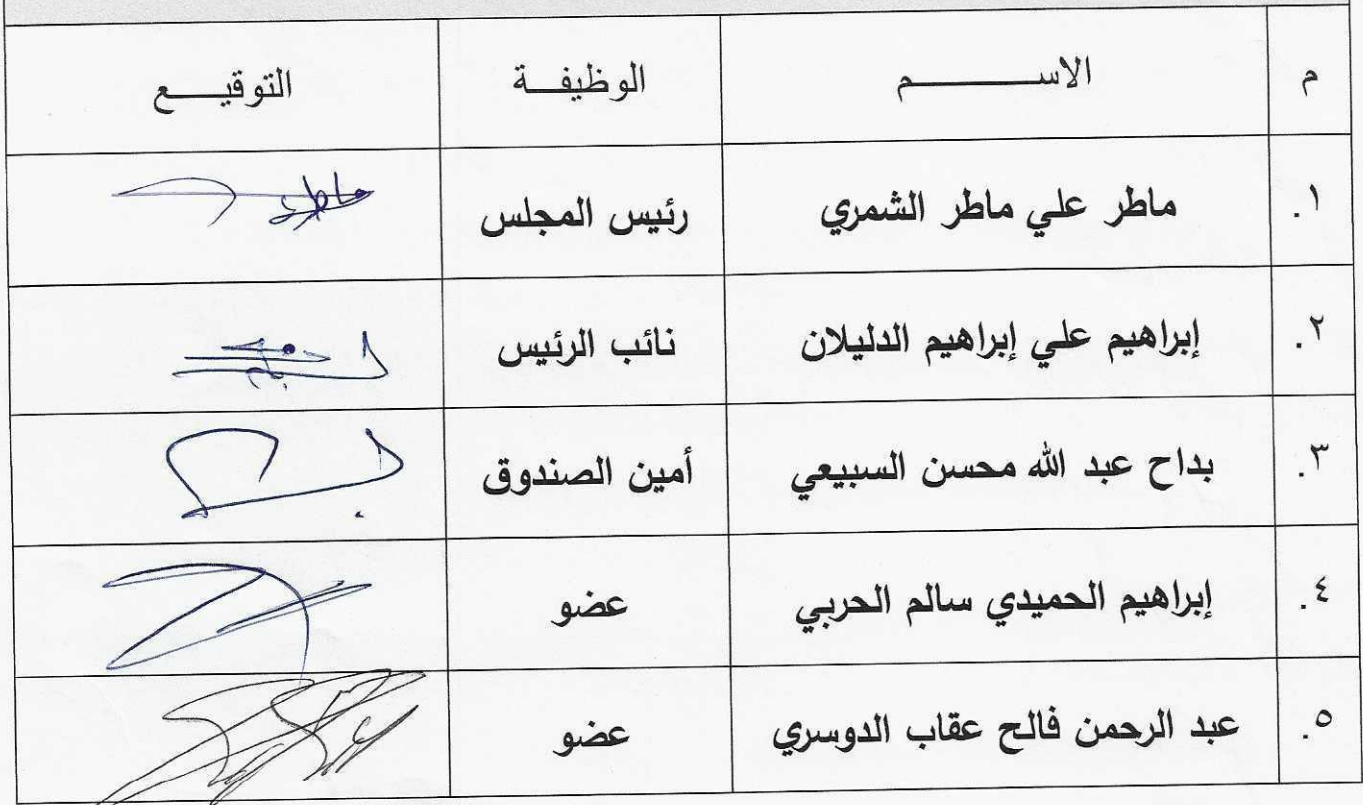 م الاســـــــــم الوظيفــة التوقيـــع
١. ماطر علي ماطر الشمري رئيس المجلس ماطر
٢. إبراهيم علي إبراهيم الدليلان نائب الرئيس
٣. بداح عبد الله محسن السبيعي أمين الصندوق
٤. إبراهيم الحميدي سالم الحربي عضو
٥. عبد الرحمن فالح عقاب الدوسري عضو